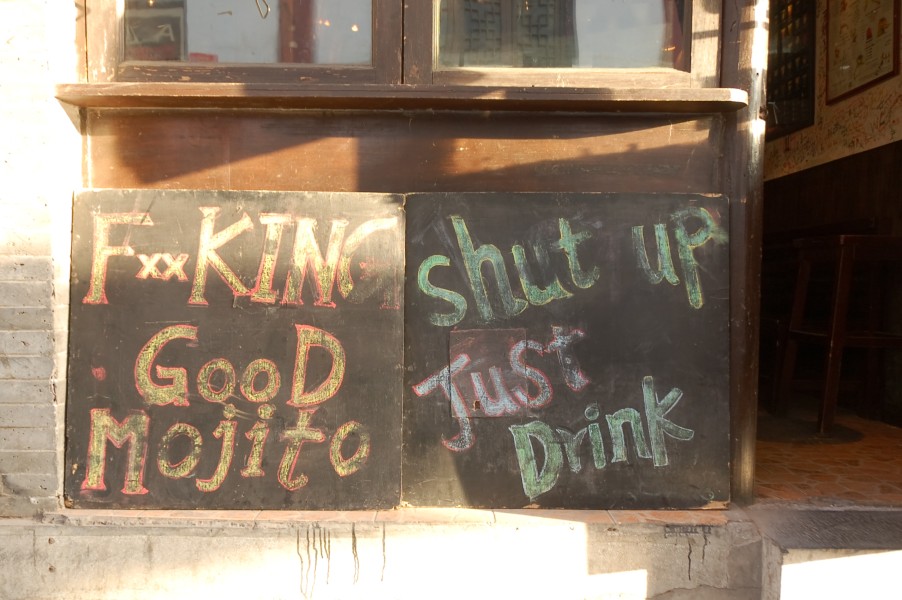 FxxKING
GooD
Mojito
shut up
Just
Drink